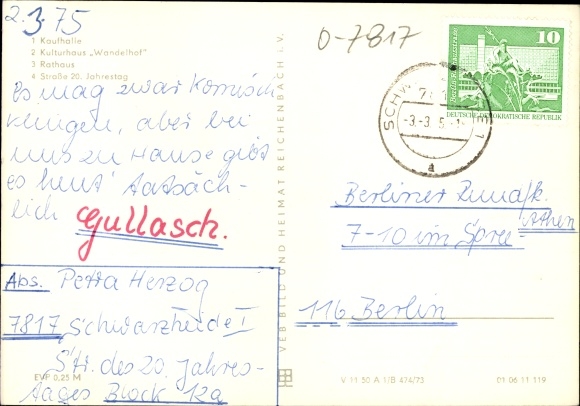 2.3.75
1 Kaufhalle
2 Kulturhaus „Wandelhof"
3 Rathaus
4 Straße 20. Jahrestag
Es mag zwar komisch
klingen, aber bei
uns zu Hause gibt
es heut' tatsäch-
lich Gullasch.
Abs. Petra Herzog
7817 Schwarzheide I
Str. des 20. Jahres-
tages Block 12a
EVP 0,25 M
VEB BILD UND HEIMAT REICHENBACH I. V.
0-7817
10
DEUTSCHE DEMOKRATISCHE REPUBLIK
-3.-3.
a
Berliner Rundfk.
7-10 im Spree-
Athen
116 Berlin
V 11 50 A 1/B 474/73
01 06 11 119